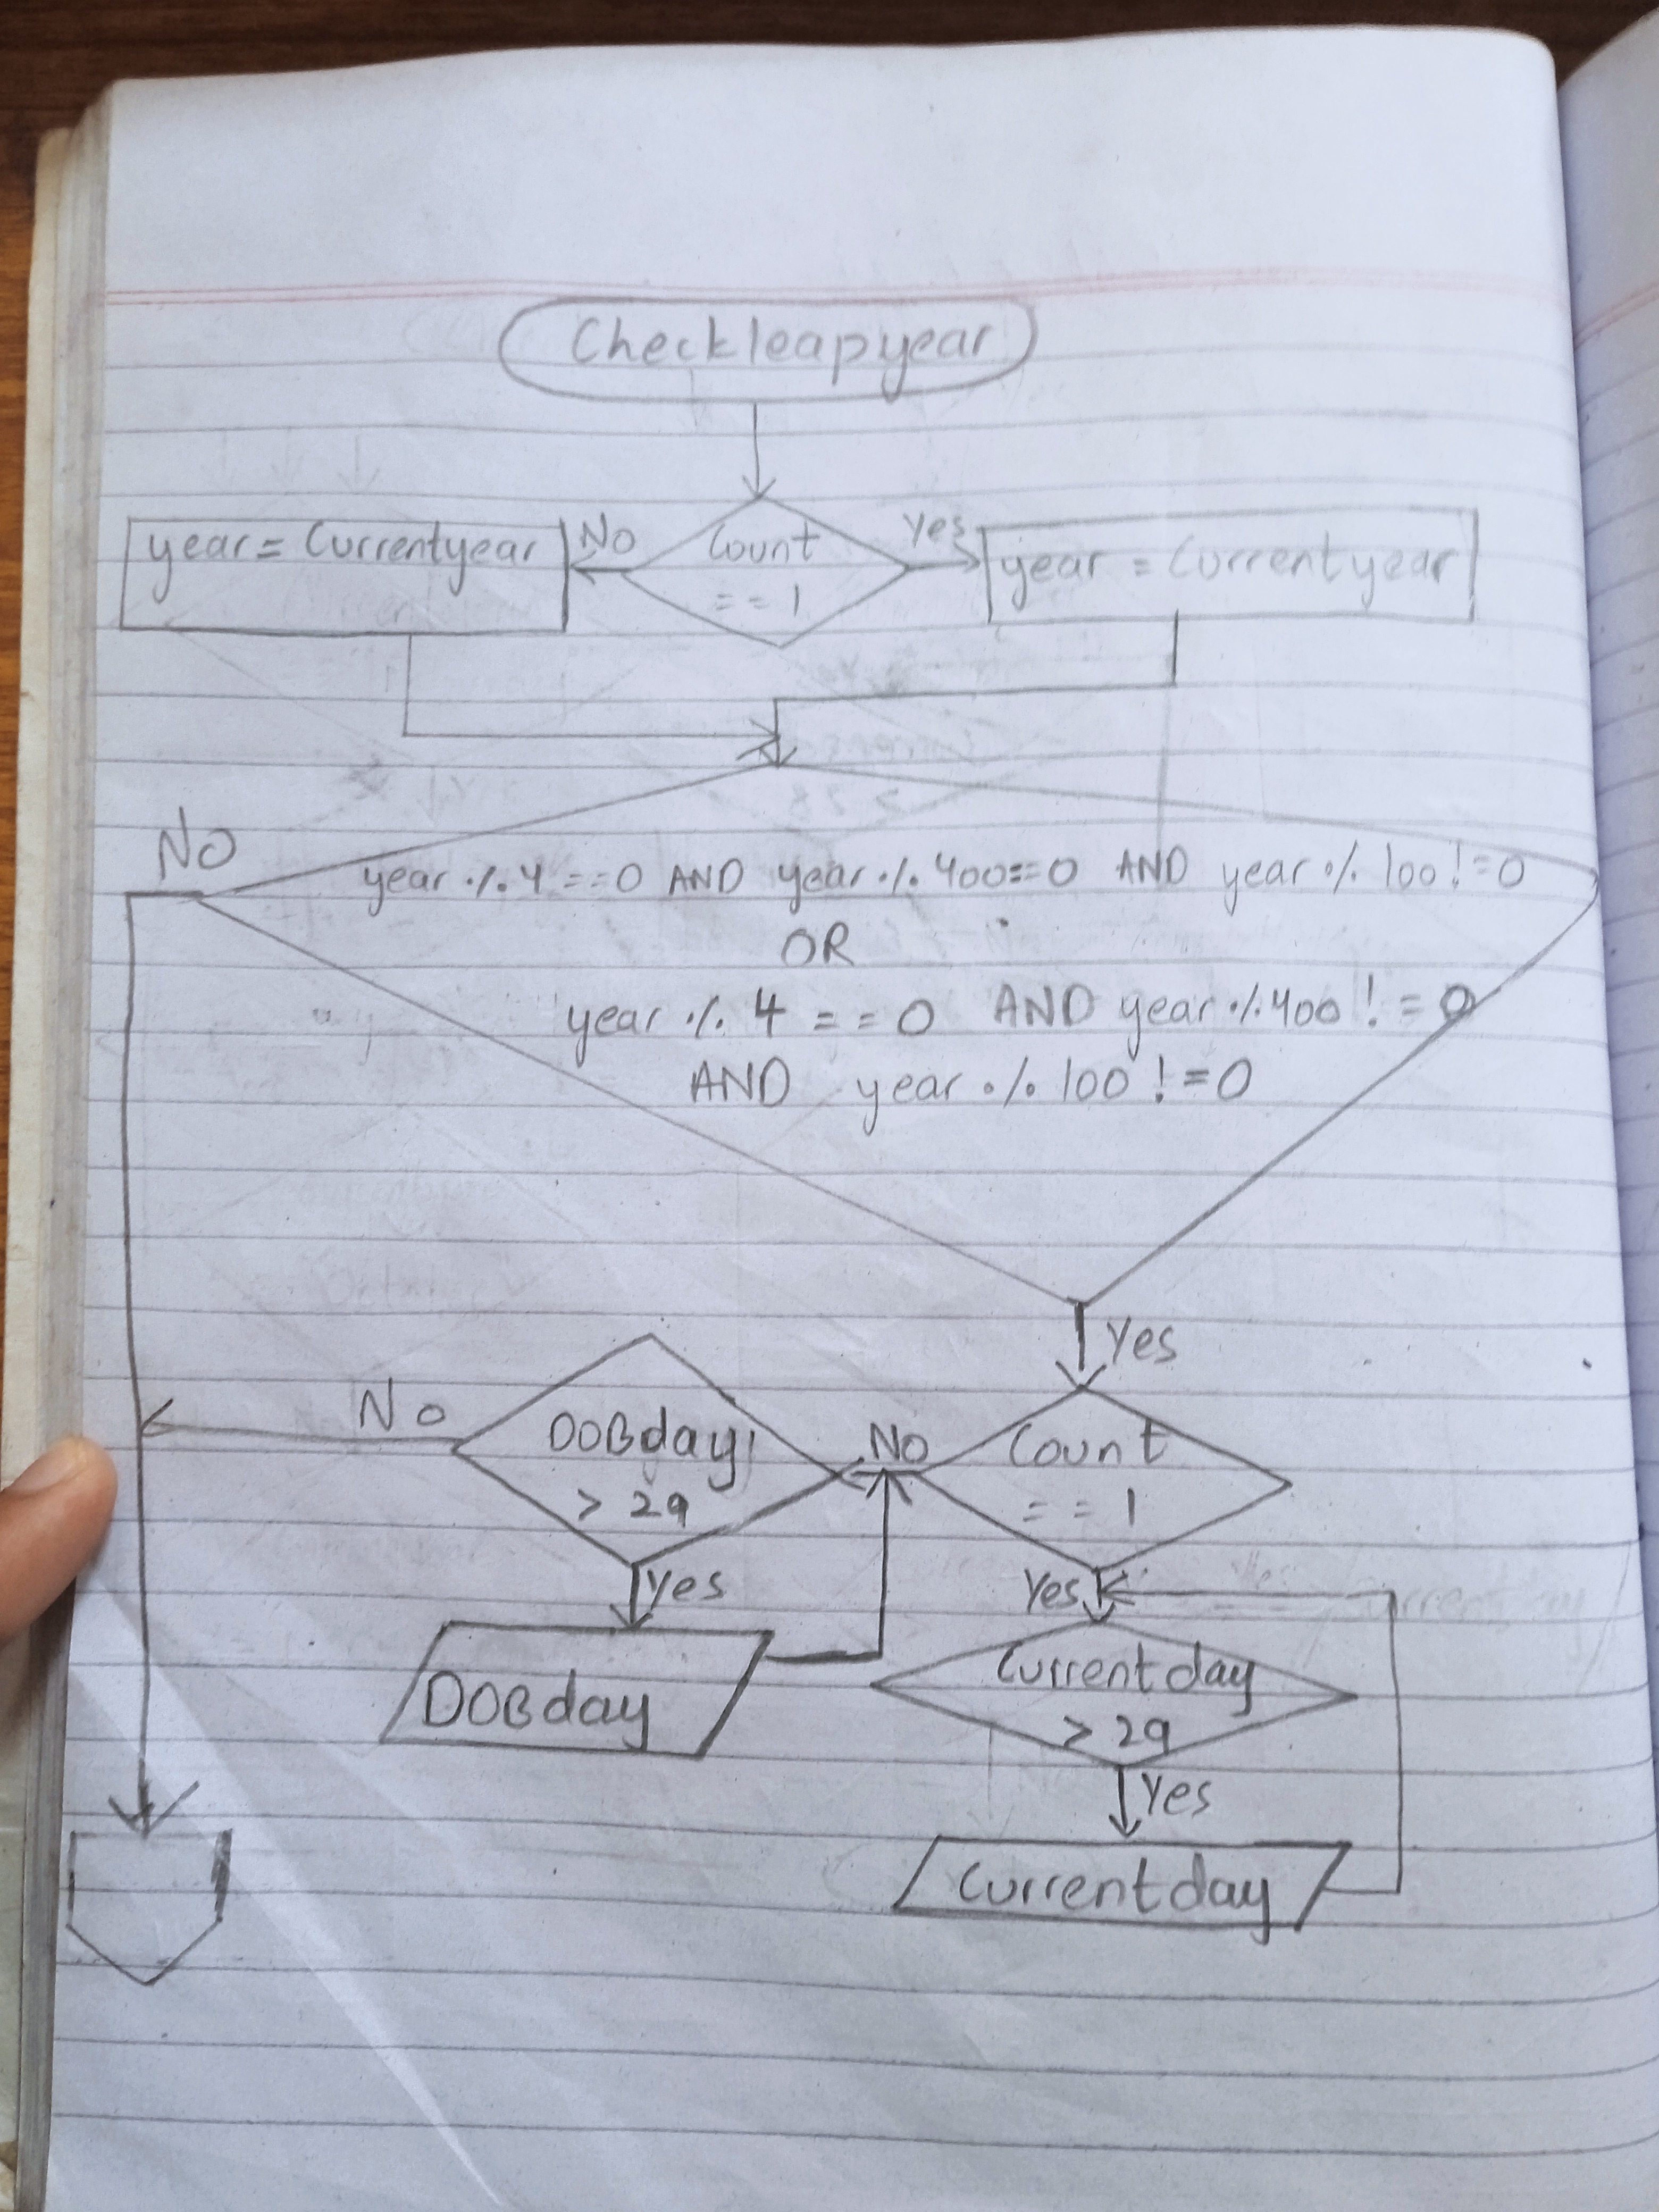 Checkleapyear
year = Currentyear
No
Count
== 1
Yes
year = Currentyear
No
year % 4 == 0 AND year % 400 == 0 AND year % 100 != 0
OR
year % 4 == 0 AND year % 400 != 0
AND year % 100 != 0
Yes
No
DOBday
> 29
No
Count
== 1
Yes
Yes
DOBday
Currentday
> 29
Yes
Currentday